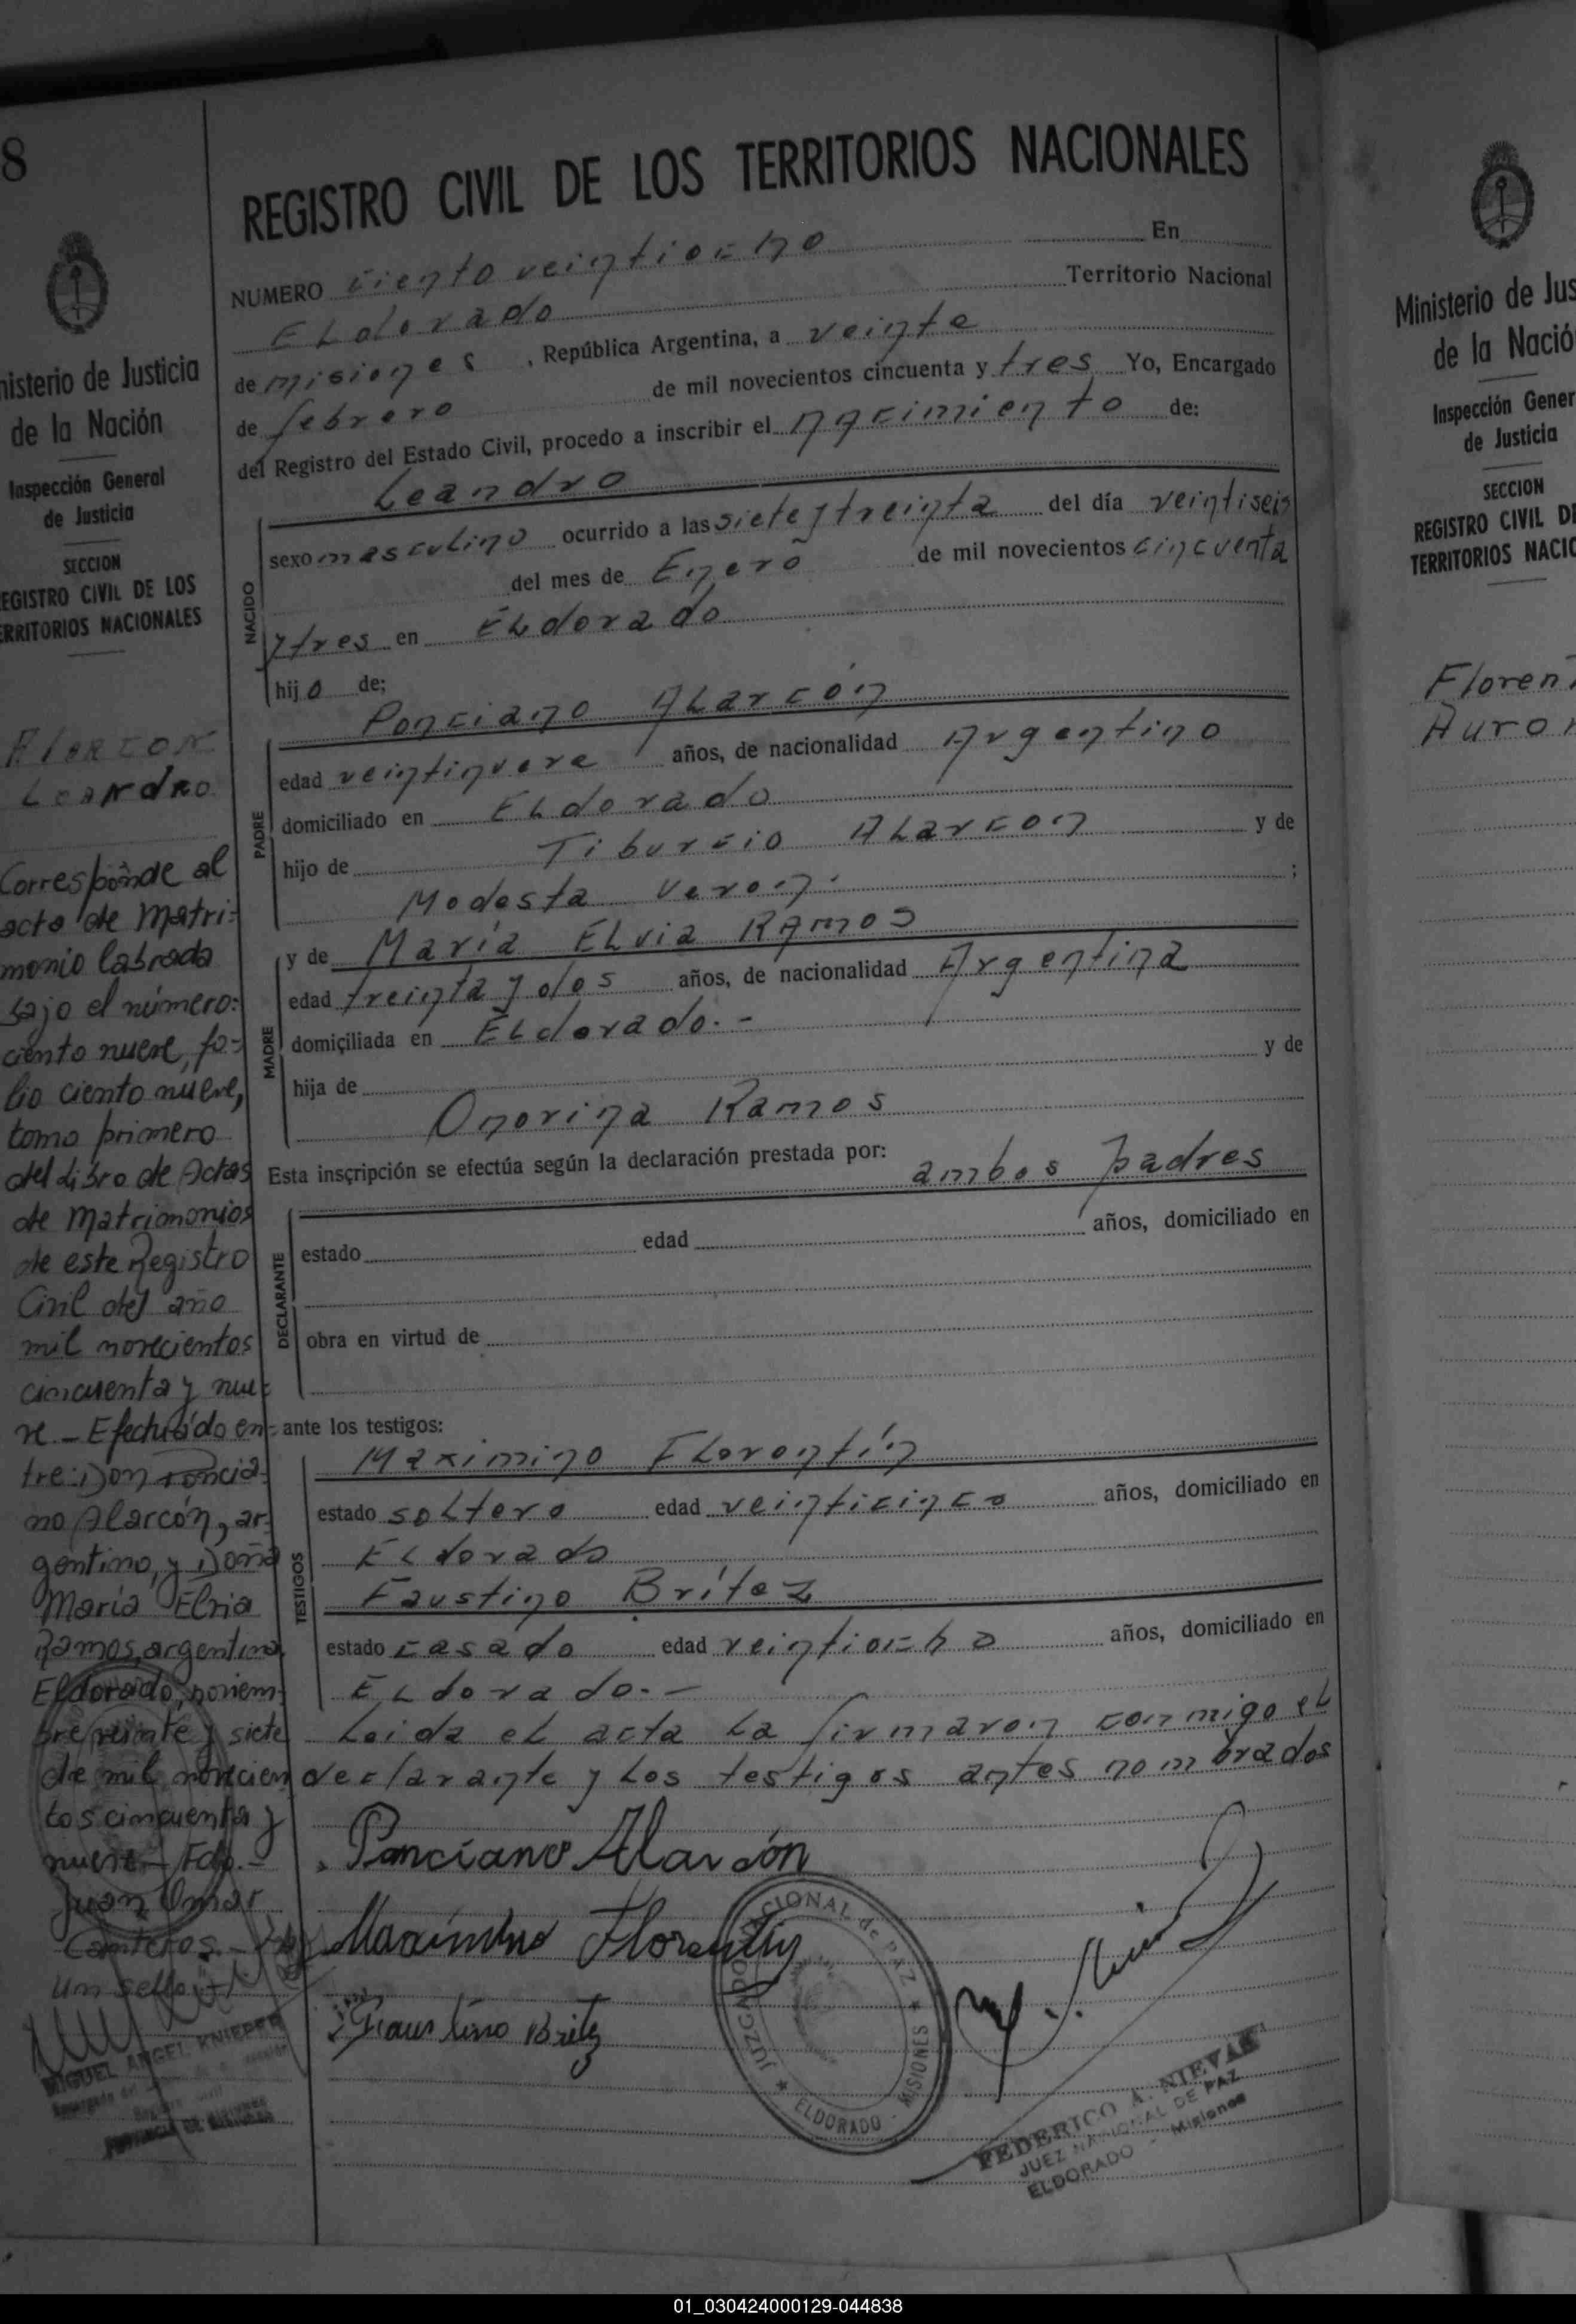 8
REGISTRO CIVIL DE LOS TERRITORIOS NACIONALES
NUMERO ciento veintiocho En
ELdorado Territorio Nacional
de misiones, República Argentina, a veinte
de febrero de mil novecientos cincuenta y tres Yo, Encargado
del Registro del Estado Civil, procedo a inscribir el nacimiento de:
Leandro
NACIDO
sexo masculino ocurrido a las siete y treinta del día veintiseis
del mes de Enero de mil novecientos cincuenta
y tres en ELdorado
hijo de;
Ponciano ALarcón
PADRE
edad veintinueve años, de nacionalidad Argentino
domiciliado en ELdorado
hijo de Tiburcio ALarcon y de
Modesta Veron. ;
y de María ELvia RAmos
MADRE
edad treinta y dos años, de nacionalidad Argentina
domiciliada en ELdorado.-
hija de y de
Onorina Ramos
Esta inscripción se efectúa según la declaración prestada por:
ambos padres
DECLARANTE
estado edad años, domiciliado en
obra en virtud de
ante los testigos:
Maximino FLorentín
TESTIGOS
estado soLtero edad veinticinco años, domiciliado en
ELdorado
Faustino Brítez
estado casado edad veintiocho años, domiciliado en
ELdorado.-
Leida eL acta La firmaron conmigo eL
declarante y Los testigos antes nombrados
Ponciano Alarcón
Maxímino Florentín
Faustino Britez
JUZGADO NACIONAL de PAZ
ELDORADO - MISIONES
FEDERICO A. NIEVAS
JUEZ NACIONAL DE PAZ
ELDORADO - Misiones
nisterio de Justicia
de la Nación
Inspección General
de Justicia
SECCION
EGISTRO CIVIL DE LOS
ERRITORIOS NACIONALES
Alarcon
Leandro
Corresponde al
acta de Matri-
monio labrada
bajo el número:
ciento nueve, fo-
lio ciento nueve,
tomo primero
del Libro de Actas
de Matrimonios
de este Registro
Civil del año
mil novecientos
cincuenta y nue-
ve.- Efectuado en-
tre: Don Poncia-
no Alarcón, ar-
gentino, y Doña
María Elvia
Ramos, argentina.
Eldorado, noviem-
bre veinte y siete
de mil novecien
tos cincuenta y
nueve.- Fdo.-
Juan Omar
Canteros.-
un sello.-
MIGUEL ANGEL KNIEPER
PROVINCIA DE MISIONES
Ministerio de Jus
de la Nació
Inspección Gener
de Justicia
SECCION
REGISTRO CIVIL DE
TERRITORIOS NACIO
Florent
Auror
01_030424000129-044838